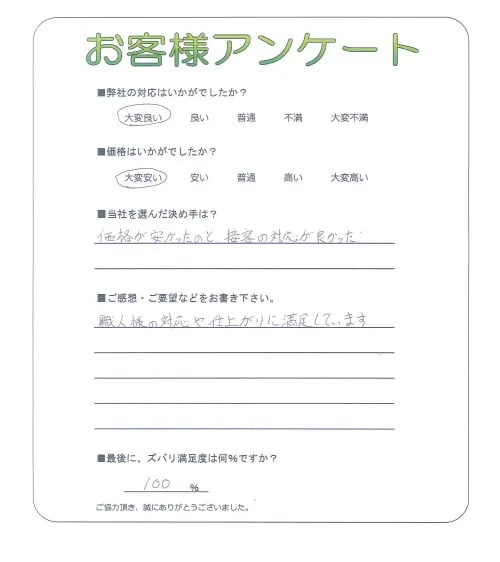 お客様アンケート
■弊社の対応はいかがでしたか？
大変良い 良い 普通 不満 大変不満
■価格はいかがでしたか？
大変安い 安い 普通 高い 大変高い
■当社を選んだ決め手は？
価格が安かったのと、接客の対応が良かった
■ご感想・ご要望などをお書き下さい。
職人様の対応や仕上がりに満足しています
■最後に、ズバリ満足度は何%ですか？
100 %
ご協力頂き、誠にありがとうございました。